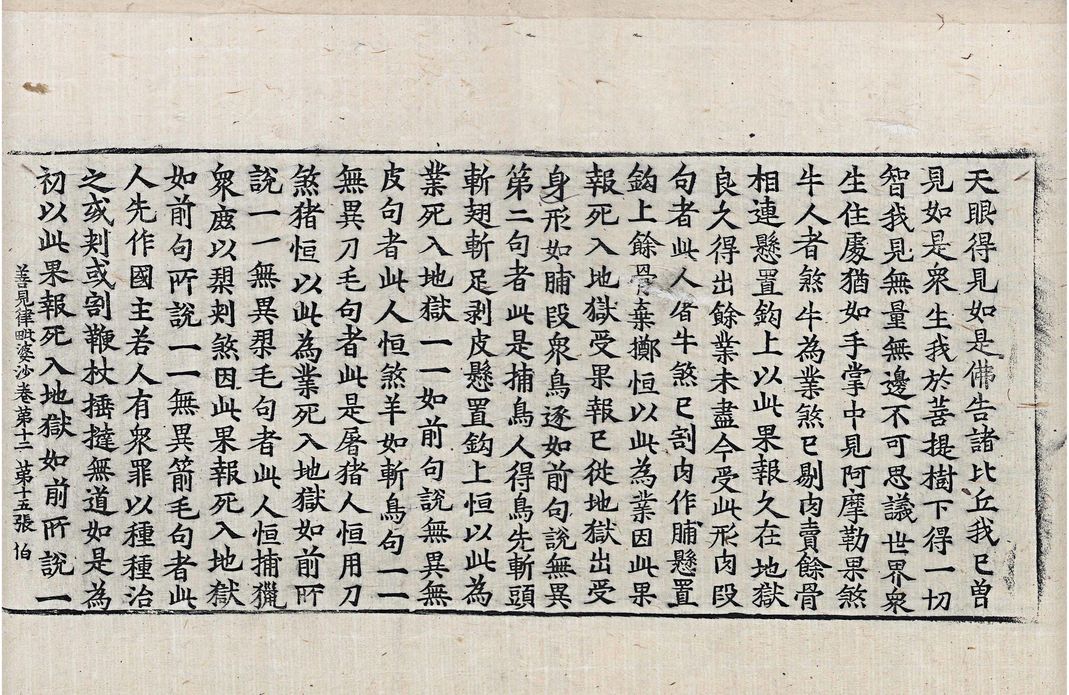 天眼得見如是佛告諸比丘我已曽
見如是衆生我於菩提樹下得一切
智我見無量無邊不可思議世界衆
生住處猶如手掌中見阿摩勒果煞
牛人者煞牛為業煞已剔肉賣餘骨
相連懸置鉤上以此果報久在地獄
良久得出餘業未盡今受此形肉段
句者此人屠牛煞已割肉作脯懸置
鉤上餘骨棄擲恒以此為業因此果
報死入地獄受果報已從地獄出受
身形如脯段衆鳥逐如前句說無異
第二句者此是捕鳥人得鳥先斬頭
斬翅斬足剥皮懸置鉤上恒以此為
業死入地獄一一如前句說無異無
皮句者此人恒煞羊如斬鳥句一一
無異刀毛句者此是屠猪人恒用刀
煞猪恒以此為業死入地獄如前所
說一一無異槊毛句者此人恒捕獵
衆鹿以槊刾煞因此果報死入地獄
如前句所說一一無異箭毛句者此
人先作國主若人有衆罪以種種治
之或刾或割鞭杖捶撻無道如是為
初以此果報死入地獄如前所說一
善見律毗婆沙卷第十二 第十五張 伯